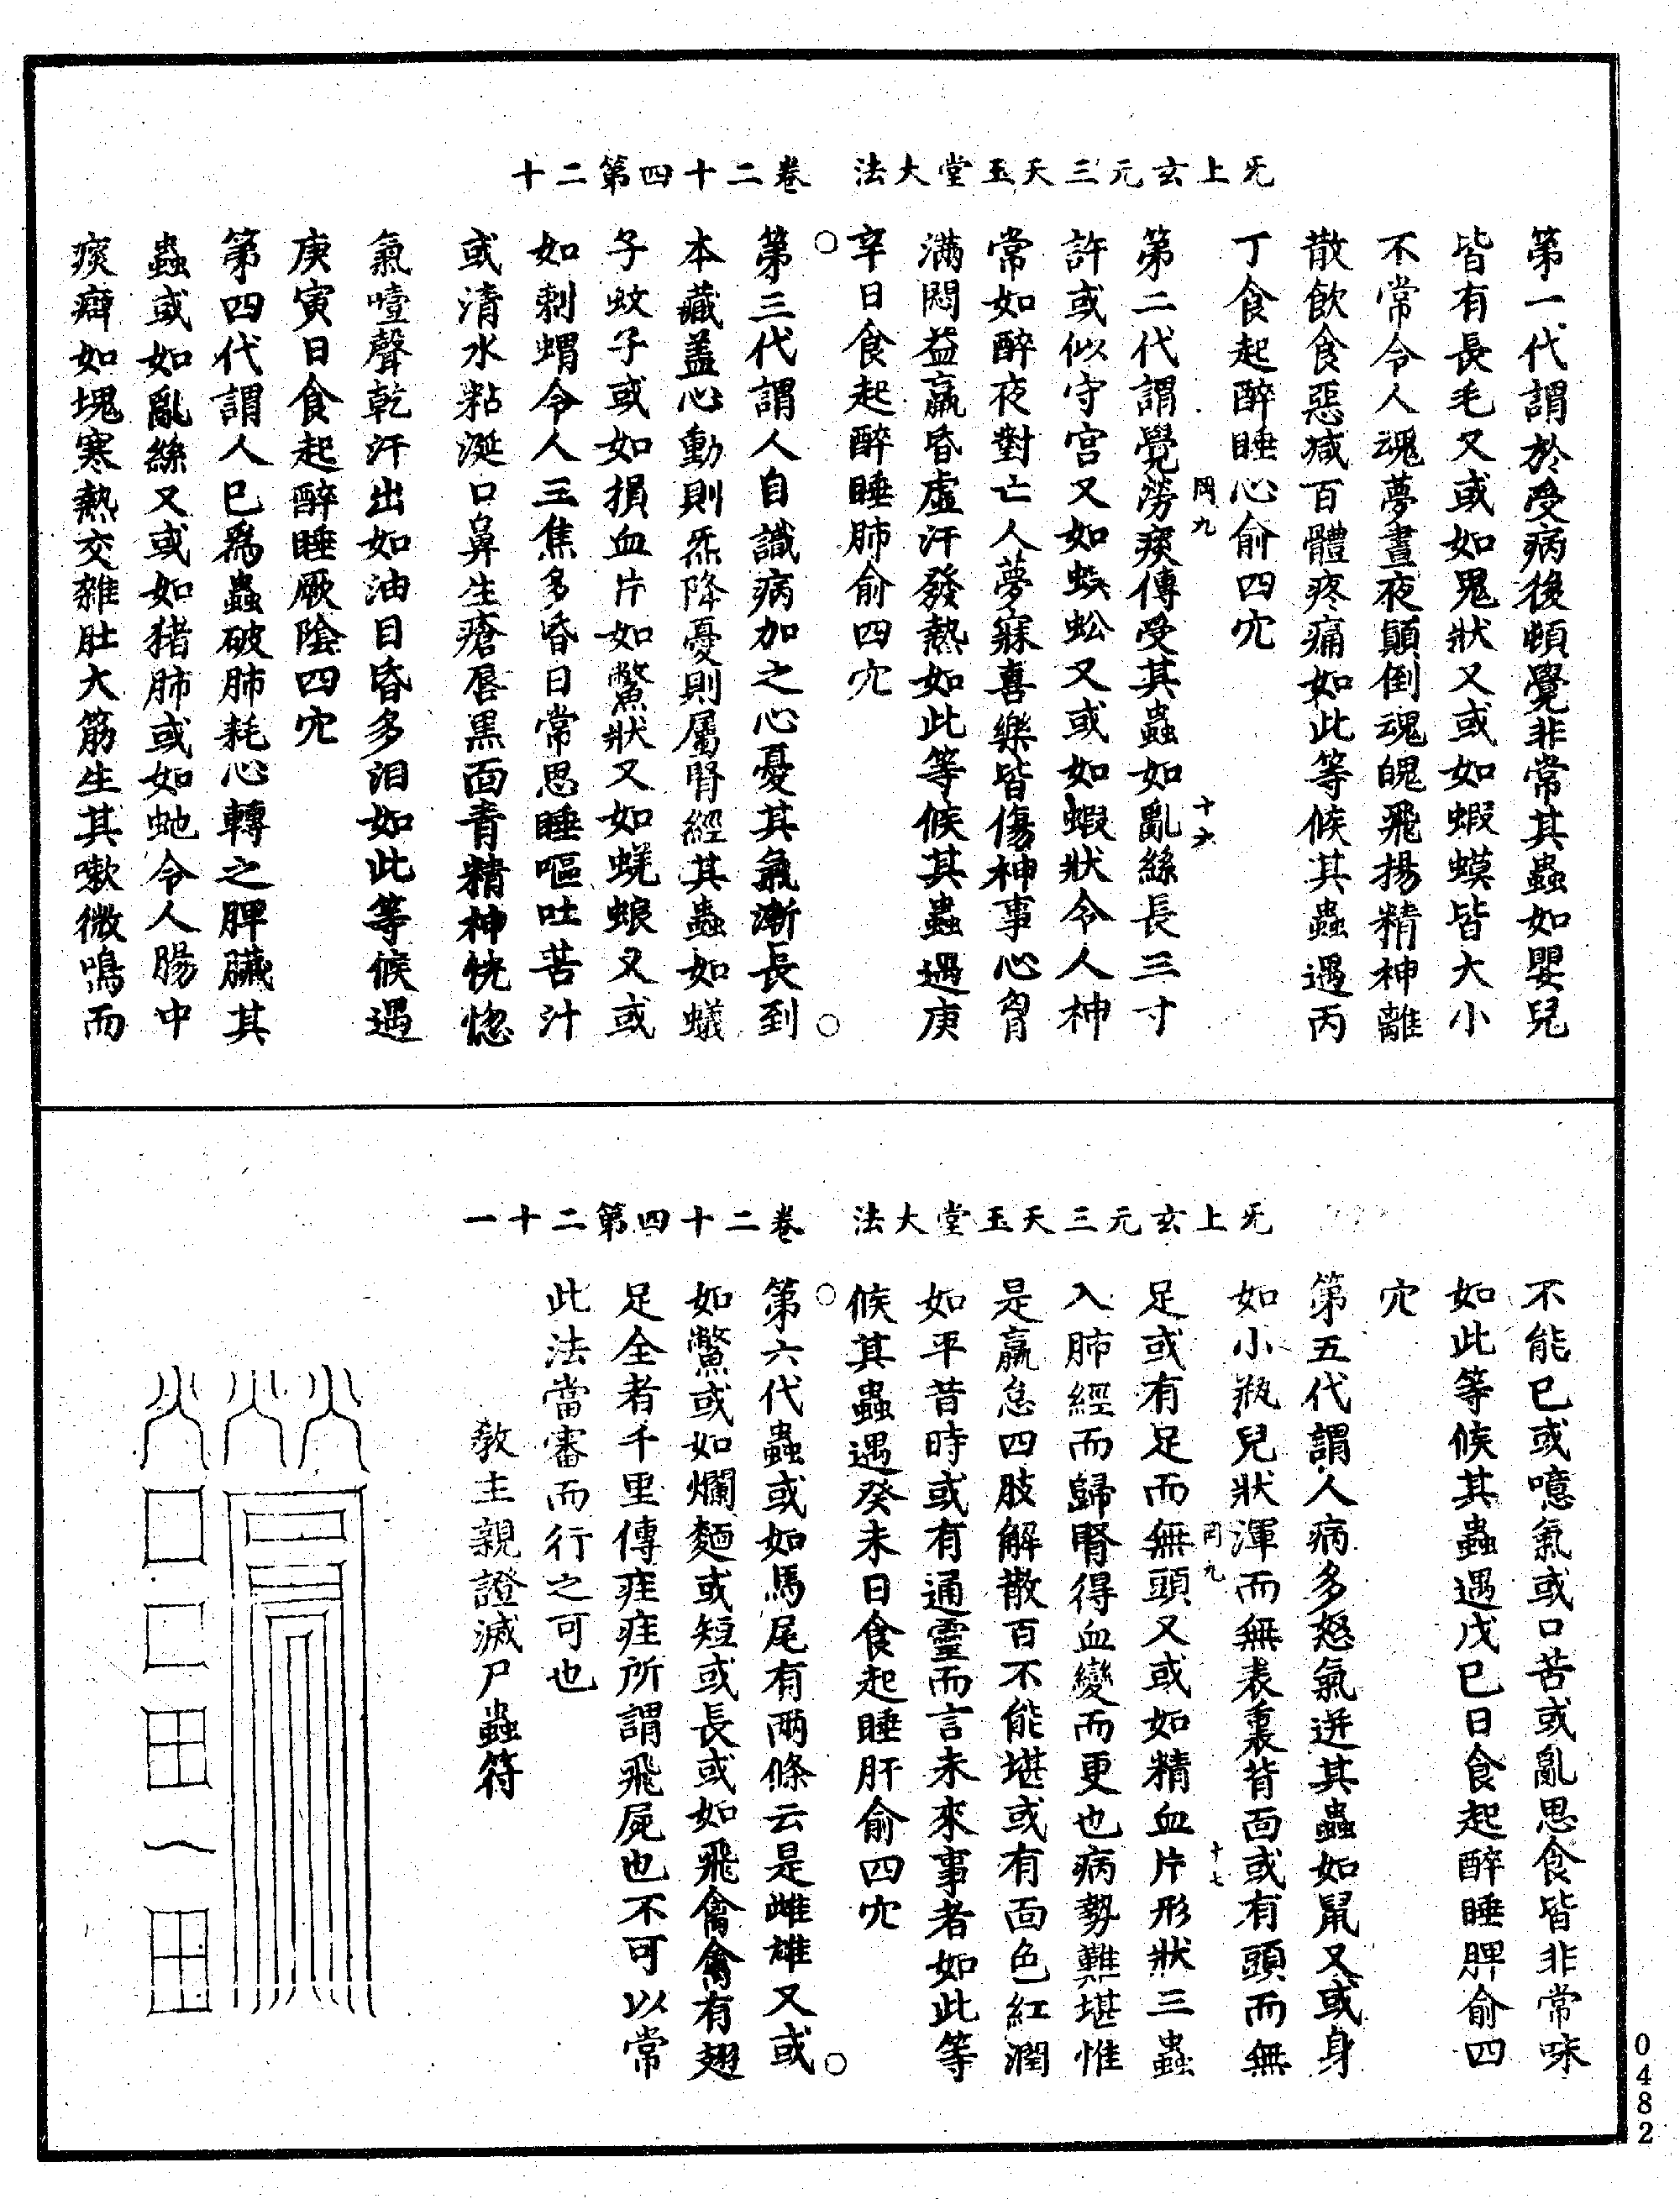 无上玄元三天玉堂大法　卷二十四第二十
第一代謂於受病後頓覺非常其蟲如嬰兒
皆有長毛又或如鬼狀又或如蝦蟆皆大小
不常令人魂夢晝夜顛倒魂魄飛揚精神離
散飲食惡减百體疼痛如此等候其蟲遇丙
丁食起醉睡心俞四穴
罔九　十六
第二代謂覺勞瘵傳受其蟲如亂絲長三寸
許或似守宮又如蜈蚣又或如蝦狀令人神
常如醉夜對亡人夢寐喜樂皆傷神事心胷
滿悶益羸昏虛汗發熱如此等候其蟲遇庚
辛日食起醉睡肺俞四穴
第三代謂人自識病加之心憂其氣漸長到
本藏盖心動則炁降憂則屬腎經其蟲如蟻
子蚊子或如損血片如鱉狀又如蜣蜋又或
如刺蝟令人三焦多昏日常思睡嘔吐苦汁
或清水粘涎口鼻生瘡唇黑面青精神恍惚
氣噎聲乾汗出如油目昏多泪如此等候遇
庚寅日食起醉睡厥陰四穴
第四代謂人已爲蟲破肺耗心轉之脾臟其
蟲或如亂絲又或如猪肺或如虵令人腸中
痰癖如塊寒熱交雜肚大筋生其嗽微鳴而
无上玄元三天玉堂大法　卷二十四第二十一
不能已或噫氣或口苦或亂思食皆非常味
如此等候其蟲遇戊巳日食起醉睡脾俞四
穴
第五代謂人病多怒氣迸其蟲如鼠又或身
如小瓶兒狀渾而無表裏背面或有頭而無
罔九　十七
足或有足而無頭又或如精血片形狀三蟲
入肺經而歸腎得血變而更也病勢難堪惟
是羸怠四肢解散百不能堪或有面色紅潤
如平昔時或有通靈而言未來事者如此等
候其蟲遇癸未日食起睡肝俞四穴
第六代蟲或如馬尾有兩條云是雌雄又或
如鱉或如爛麵或短或長或如飛禽禽有翅
足全者千里傳疰疰所謂飛屍也不可以常
此法當審而行之可也
教主親證滅尸蟲符
0482